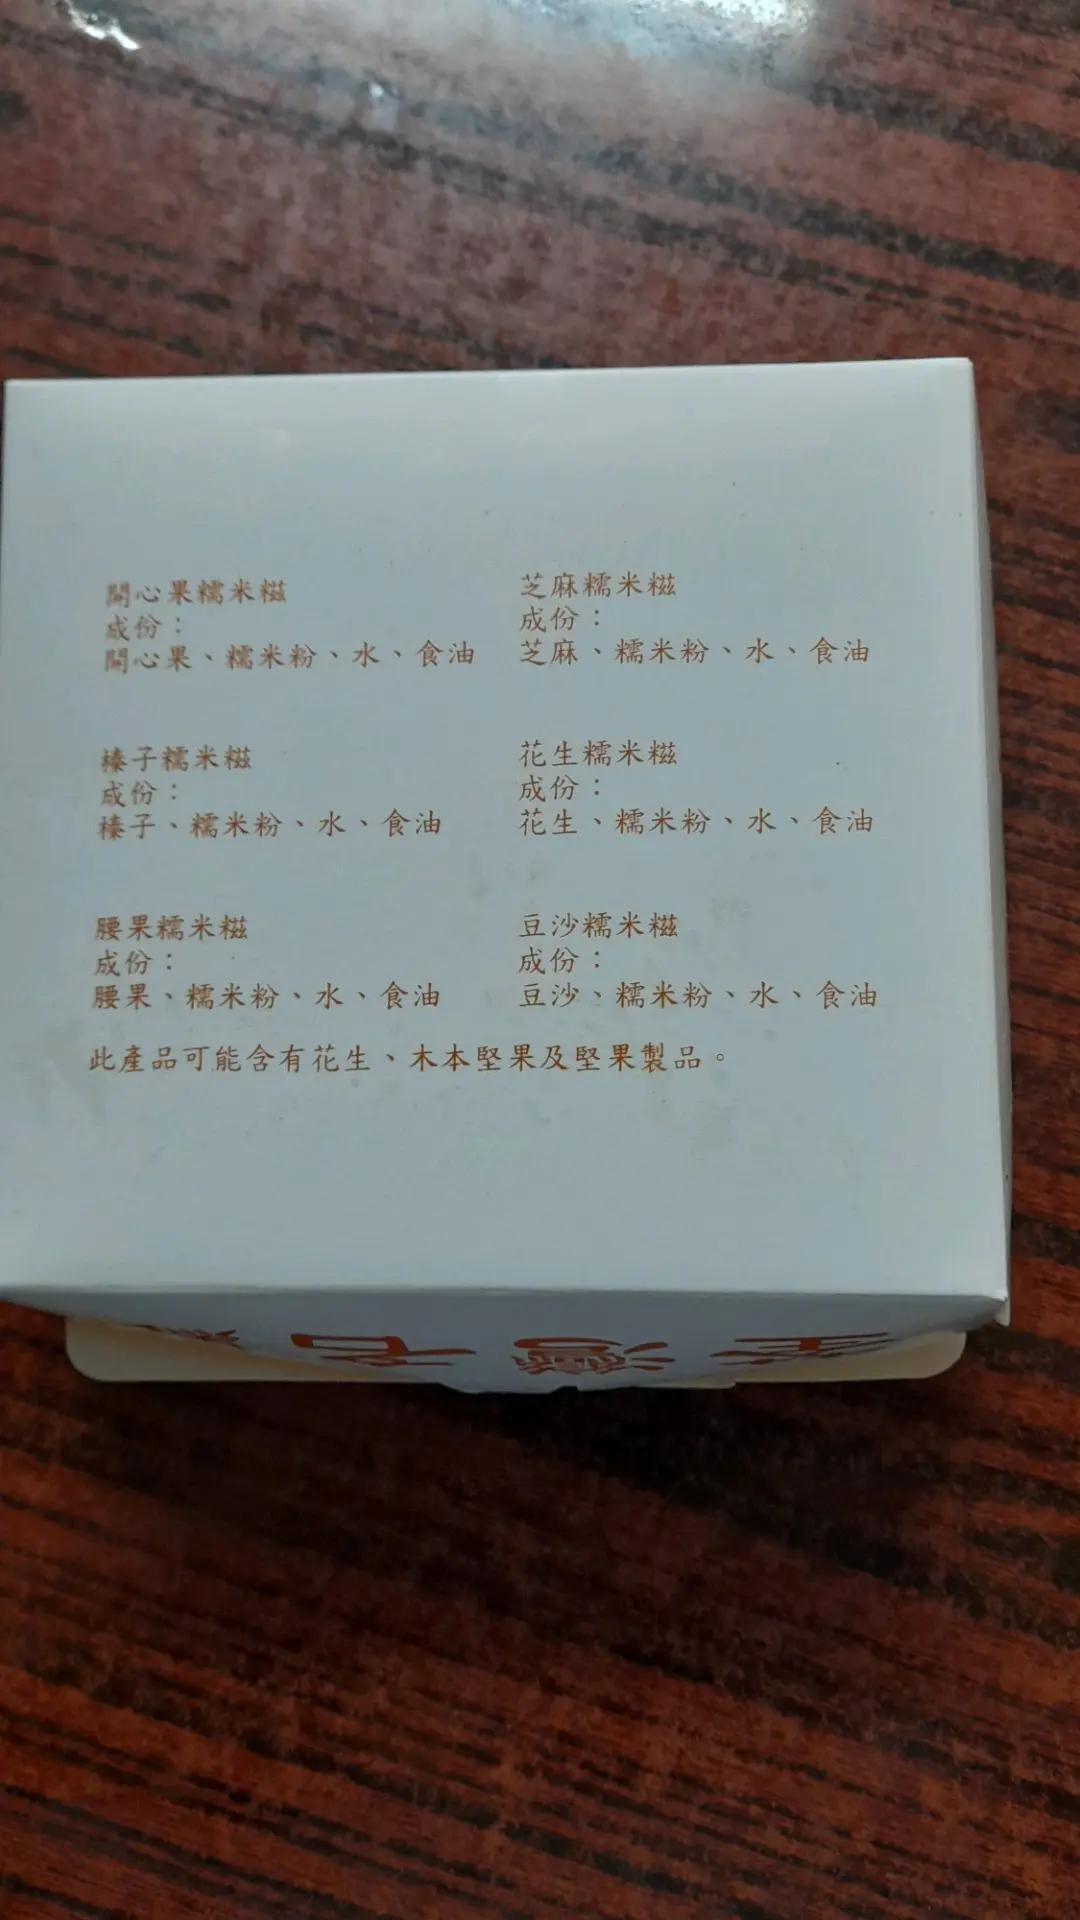 開心果糯米糍
成份：
開心果、糯米粉、水、食油
芝麻糯米糍
成份：
芝麻、糯米粉、水、食油
榛子糯米糍
成份：
榛子、糯米粉、水、食油
花生糯米糍
成份：
花生、糯米粉、水、食油
腰果糯米糍
成份：
腰果、糯米粉、水、食油
豆沙糯米糍
成份：
豆沙、糯米粉、水、食油
此產品可能含有花生、木本堅果及堅果製品。